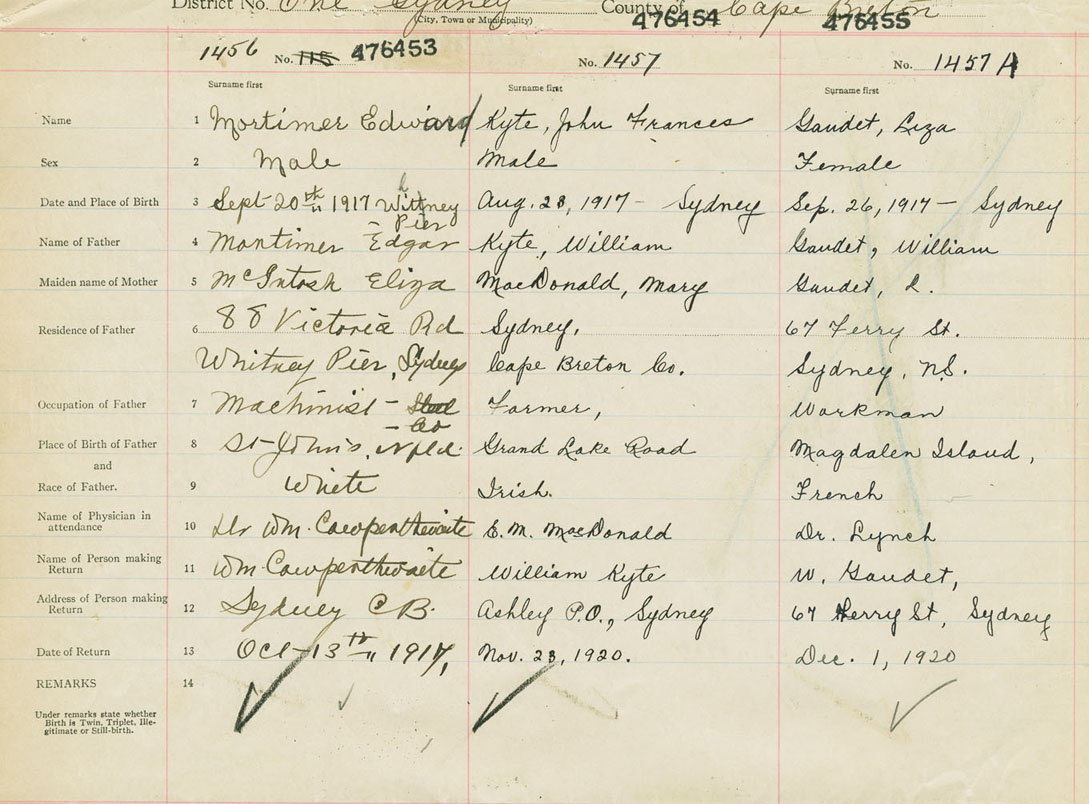 District No. One Sydney County of Cape Breton
(City, Town or Municipality)
476454 476455
1456 No. 115 476453 No. 1457 No. 1457 A
Surname first Surname first Surname first
Name 1 Mortimer Edward Kyte, John Frances Gaudet, Liza
Sex 2 Male Male Female
Date and Place of Birth 3 Sept 20th " 1917 Wittney Aug. 28, 1917 - Sydney Sep. 26, 1917 - Sydney
h
Pier
Name of Father 4 Mortimer Edgar Kyte, William Gaudet, William
Maiden name of Mother 5 McIntosh Eliza MacDonald, Mary Gaudet, L.
Residence of Father 6 88 Victoria Rd Sydney, 67 Ferry St.
Whitney Pier, Sydney Cape Breton Co. Sydney, N.S.
Occupation of Father 7 Machinist - Steel Farmer, Workman
- Co
Place of Birth of Father 8 St John's, Nfld. Grand Lake Road Magdalen Island,
and
Race of Father. 9 White Irish. French
Name of Physician in
attendance 10 Dr Wm. Cowperthwaite E. M. MacDonald Dr. Lynch
Name of Person making
Return 11 Wm Cowperthwaite William Kyte W. Gaudet,
Address of Person making
Return 12 Sydney C B. Ashley P.O., Sydney 67 Ferry St, Sydney
Date of Return 13 Oct - 13th " 1917, Nov. 23, 1920. Dec. 1, 1920
REMARKS 14
Under remarks state whether
Birth is Twin, Triplet, Ille-
gitimate or Still-birth.